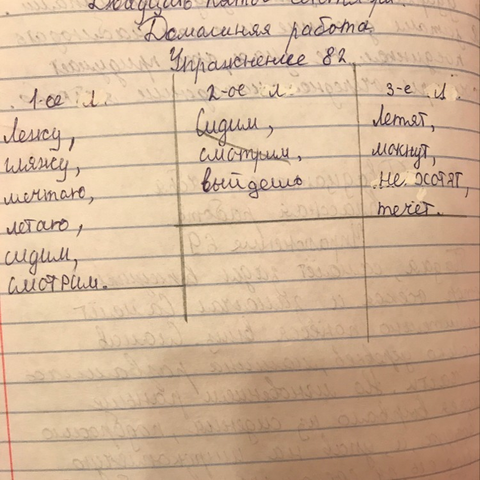 Двадцать пятое сентября.
Домашняя работа
Упражнение 82.
1-ое л.
Лежу,
гляжу,
мечтаю,
летаю,
сидим,
смотрим.
2-ое л.
Сидим,
смотрим,
выйдешь
3-е л.
Летят,
мокнут,
не хотят,
течёт.